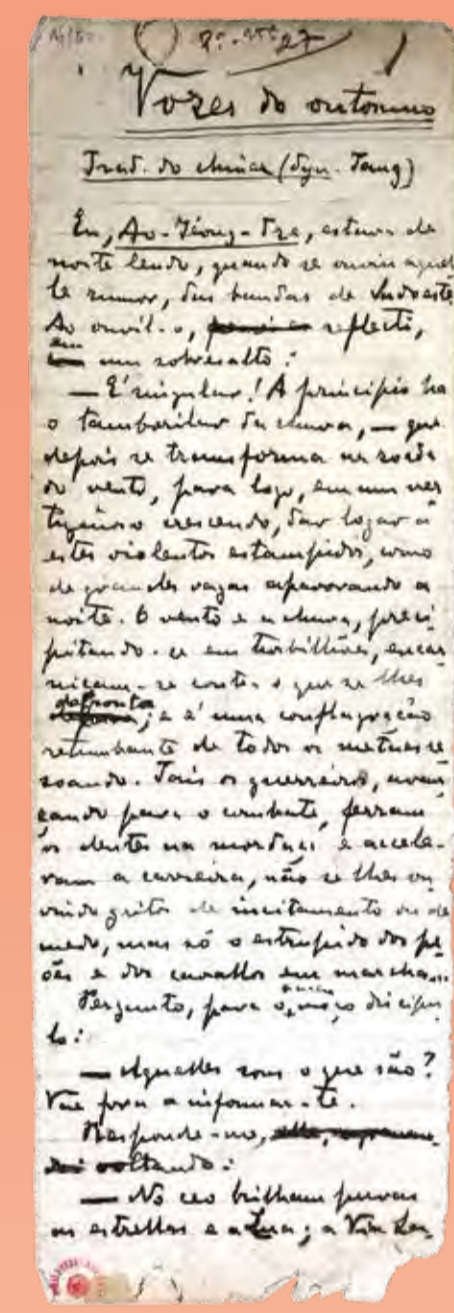 Vozes do outomno
Trad. do chinez (Dyn. Tang)
Eu, Ao-Yéong-Tze, estava de
noite lendo, quando se ouviu aquel
le rumor, das bandas de Sudoeste.
Ao ouvil-o, reflecti,
em um sobresalto:
— E' singular! A principio ha
o tamborilar da chuva, — que
depois se transforma na zoada
do vento, para logo, em um ver
tiginoso crescendo, dar logar a
estes violentos estampidos, como
de grandes vagas apavorando a
noite. O vento e a chuva, preci
pitando-se em turbilhões, encar
niçam-se contra o que se lhes
defronta; e é uma conflagração
retumbante de todos os metaes re
soando. Tais os guerreiros, avan
çando para o combate, ferram
os dentes na mordaça e accele-
ram a carreira, não se lhes ou
vindo gritos de incitamento ou de
medo, mas só o estrupido dos pe
ões e dos cavallos em marcha...
Pergunto, para o moço discipu
lo:
— Aquelles sons o que são?
Vae fora a informar-te.
Responde-me,
voltando:
— No ceo brilham puras
as estrellas e a Lua; a Via La